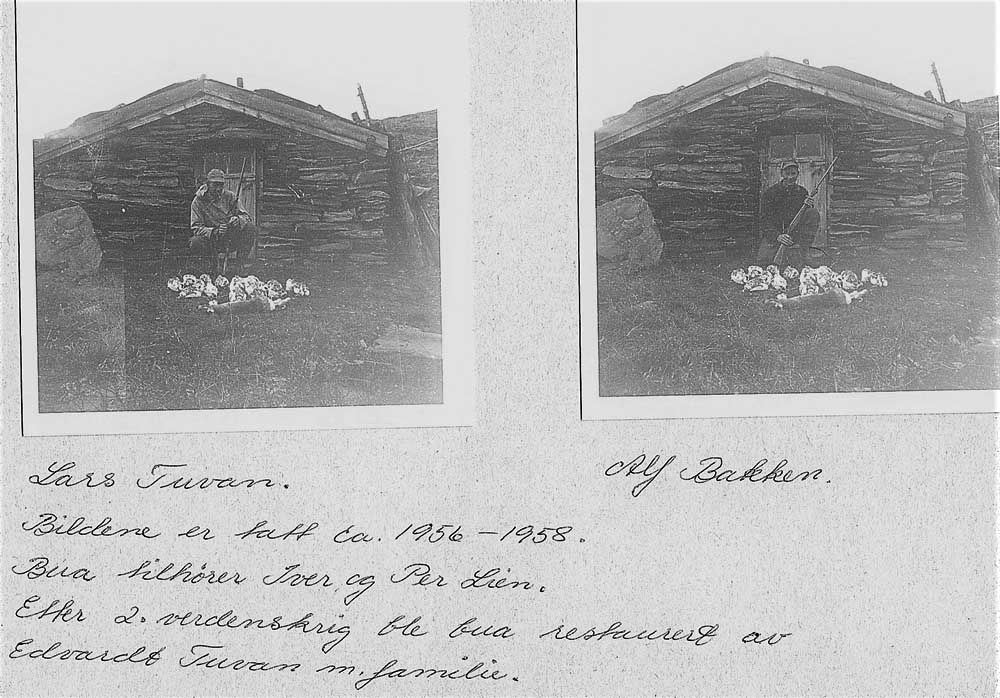 Lars Tuvan.
Alf Bakken.
Bildene er tatt ca. 1956 – 1958.
Bua tilhører Iver og Per Lien.
Etter 2. verdenskrig ble bua restaurert av
Edvardt Tuvan m. familie.